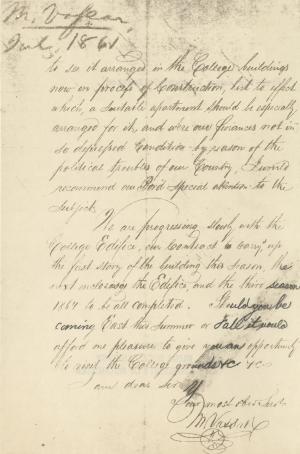 M. Vassar,
July, 1861
to see it arranged in the College buildings
now in process of Construction, but to effect
which, a suitable apartment should be especially
arranged for it, and were our finances not in
so depressed condition by reason of the
political troubles of our Country, I would
recommend our Board special attention to the
Subject.
We are progressing slowly with the
College Edifice, our Contract is carry'g up
the first story of the building this Season, the
next inclosing the Edifice, and the third season
1864 to be all completed. Should you be
coming East this Summer or Fall it would
afford me pleasure to give you an opportunity
to visit the College grounds &c &c
am dear Sir
Your most
M. Vassar